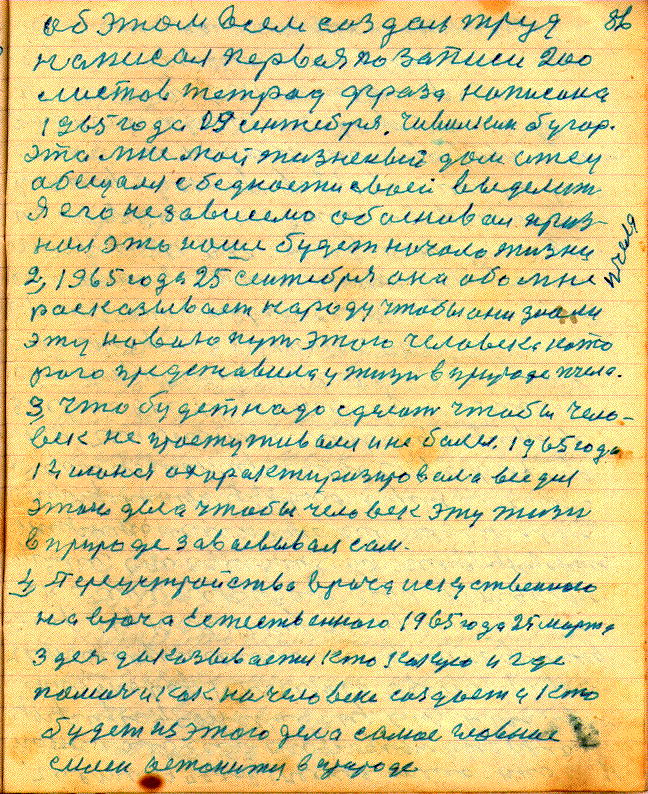 об этом всем создал труд 86
написал первая по записи 200
листов тетрад фраза написана
1965 года 19 сентября. Чивилкин бугор.
Эта мне мой жизненый дом отец
абещался с бедности своей выделит
Я его независемо обосновал приз-
нал это наше будет начало жизни
2, 1965 года 25 сентября она обо мне
расказывает народу чтобы они знали
эту новою пут этого человека като
рого представила у жизн в природе пчела.
пчела
3, Что будет надо сделат чтобы чело-
век не простуживался и не болел. 1965 года
14 июня охорактиризировала все для
этого дела чтобы человек эту жизн
в природе завоевывал сам.
4, Переустройства врача искуственного
на врача естественного 1965 года 25 марта
здес даказывается кто какую и где
помоч и как на человеке создает и кто
будет из этого дела самое главные
силы в природе